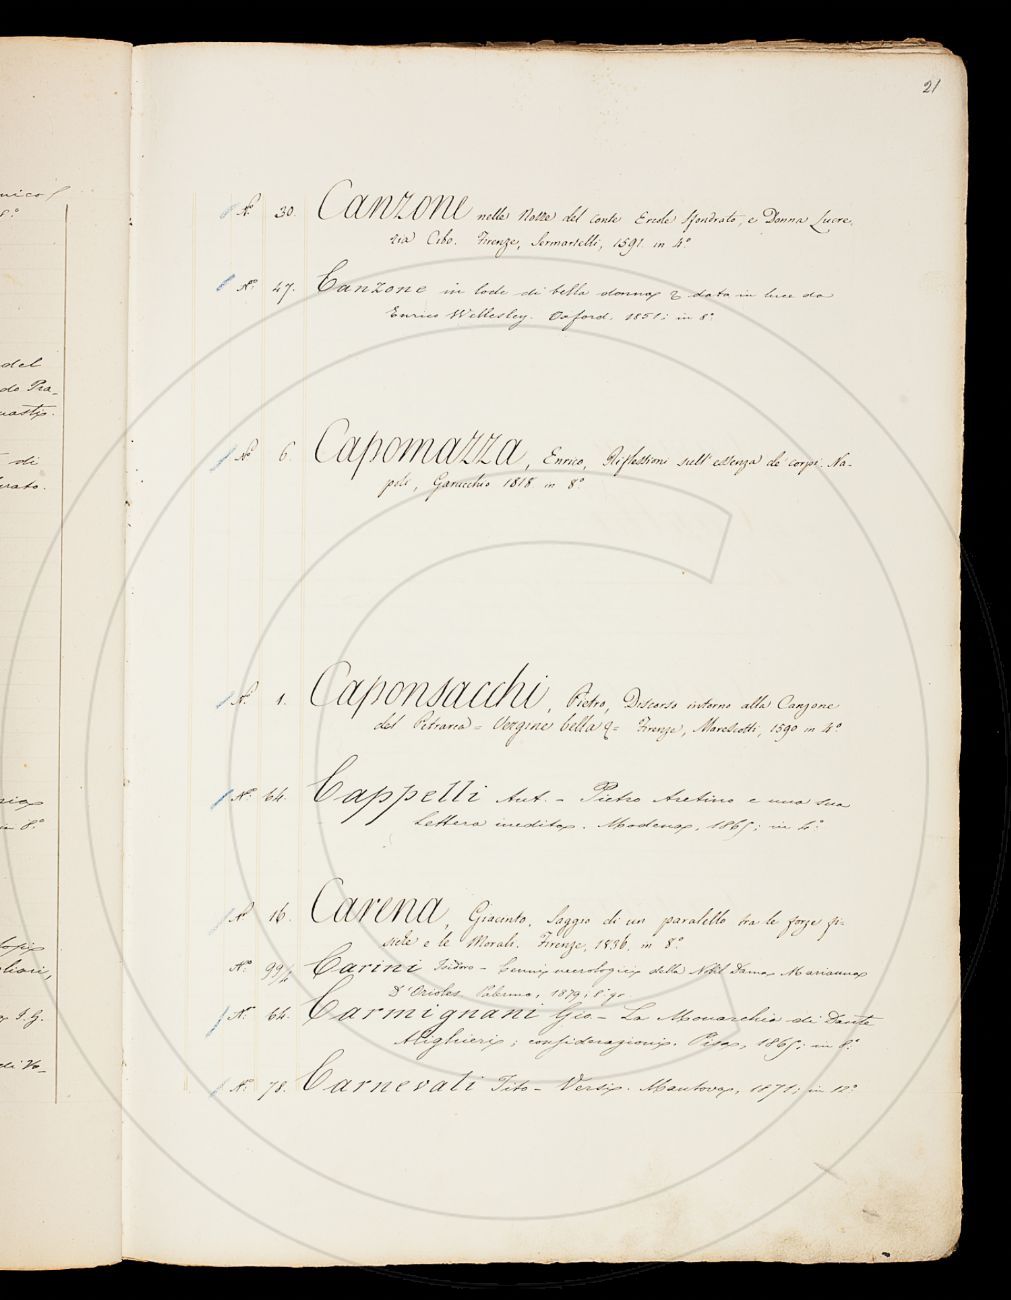 21
N.º 30. Canzone nelle Nozze del Conte Ercole Sfondrato, e Donna Lucre-
zia Cibo. Firenze, Sermartelli, 1591. in 4º
N.º 47. Canzone in lode di bella donna & data in luce da
Enrico Wellesley. Oxford, 1851; in 8.º
N.º 6. Capomazza, Enrico, Riflessioni sull'essenza de' corpi. Na-
poli, Garucchio 1818 in 8.º
N.º 1. Caponsacchi, Pietro, Discorso intorno alla Canzone
del Petrarca = Vergine bella &= Firenze, Marescotti, 1590 in 4.º
N.º 64. Cappelli Ant. - Pietro Aretino e una sua
lettera inedita. Modena, 1865; in 4.º
N.º 16. Carena, Giacinto, Saggio di un paralello tra le forze fi-
siche e le Morali. Firenze, 1836. in 8.º
N.º 99 Carini Isidoro - Cenni necrologici della Nobil Dama Marianna
D'Orioles. Palermo, 1879; 8.º gr.
N.º 64. Carmignani Gio. - La Monarchia di Dante
Alighieri; considerazioni. Pisa, 1865; in 8.º
N.º 78. Carnevali Tito - Versi. Mantova, 1871; in 12.º
nico
8.º
del
do Pra-
di
rato.
in 8.º
I. G.
di Vo-